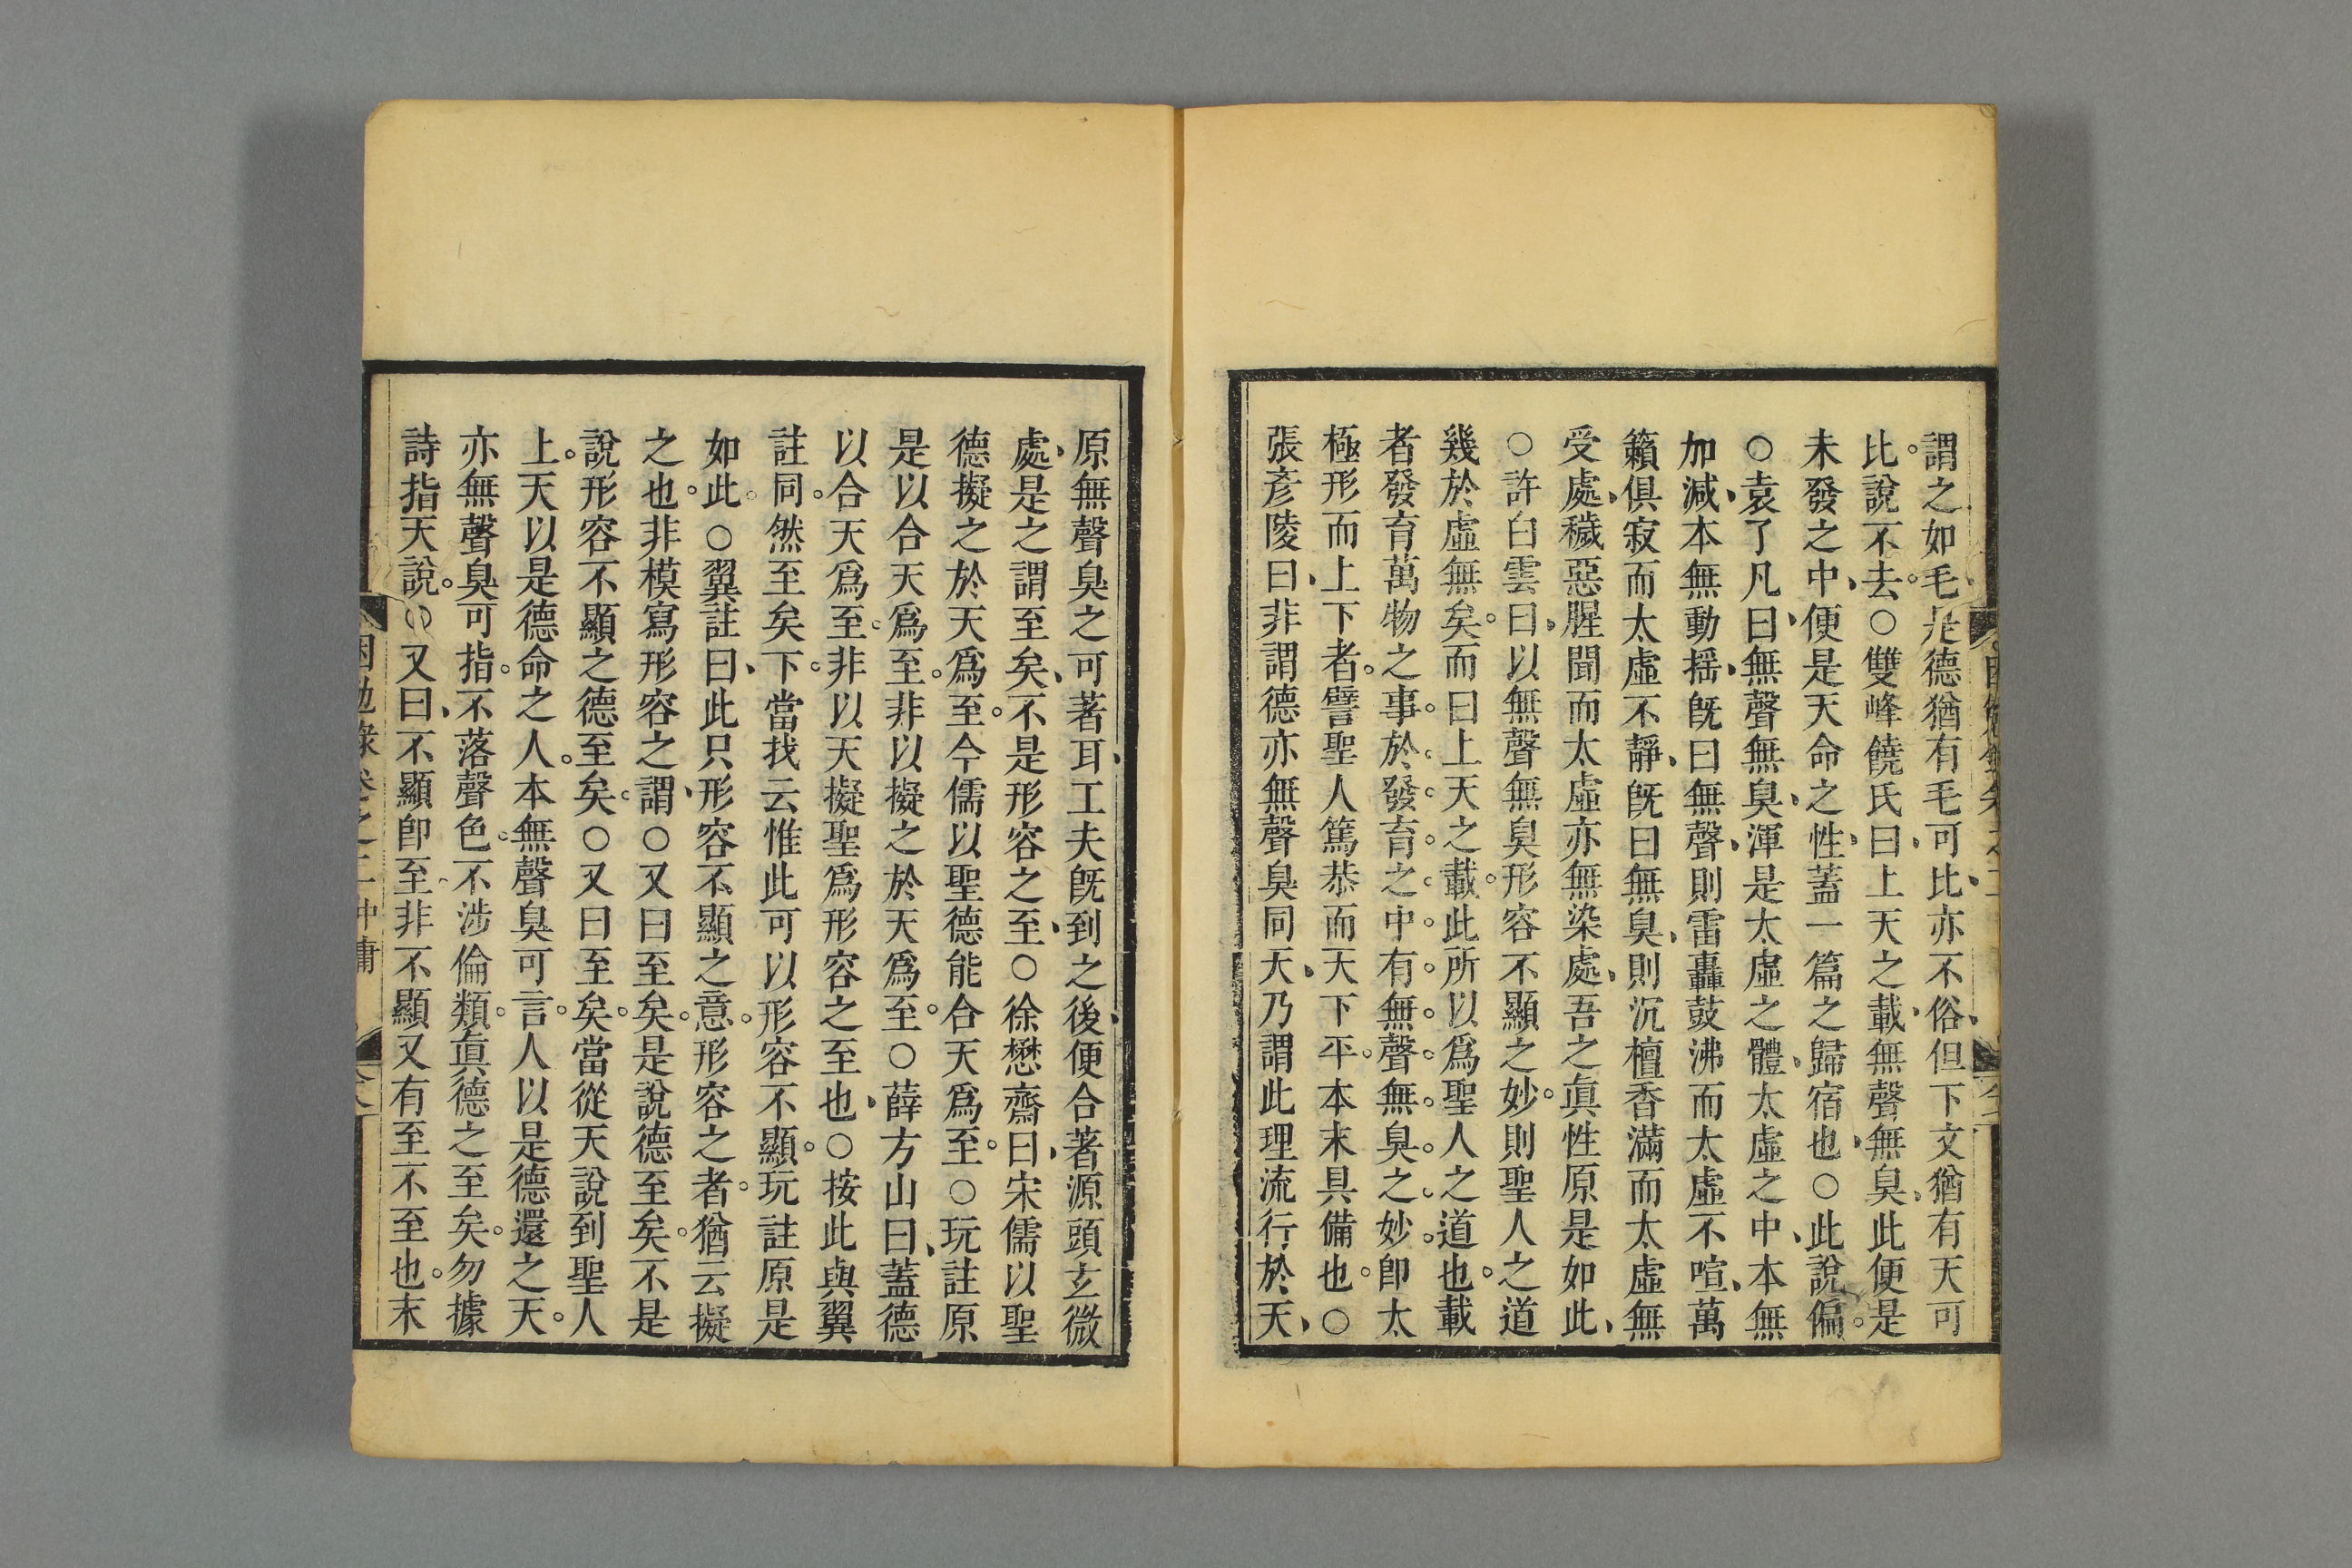 謂之如毛、是德猶有毛可比、亦不俗、但下文猶有天可
比。說不去。○雙峰饒氏曰、上天之載、無聲無臭、此便是
未發之中、便是天命之性、蓋一篇之歸宿也、○此說偏。
○袁了凡曰、無聲無臭、渾是太虛之體、太虛之中、本無
加減、本無動搖、旣曰無聲、則雷轟鼓沸而太虛不喧、萬
籟俱寂而太虛不靜、旣曰無臭、則沉檀香滿而太虛無
受處、穢惡腥聞而太虛亦無染處、吾之眞性原是如此、
○許白雲曰、以無聲無臭形容不顯之妙。則聖人之道
幾於虛無矣。而曰上天之載。此所以爲聖人之道也。載
者發育萬物之事。於發育之中有無聲無臭之妙。卽太
極形而上下者。譬聖人篤恭而天下平。本末具備也。○
張彥陵曰、非謂德亦無聲臭同天、乃謂此理流行於天、
原無聲臭之可著耳、工夫旣到之後、便合著源頭玄微
處、是之謂至矣、不是形容之至、○徐懋齋曰、宋儒以聖
德擬之於天爲至。今儒以聖德能合天爲至。○玩註原
是以合天爲至。非以擬之於天爲至。○薛方山曰、蓋德
以合天爲至。非以天擬聖爲形容之至也、○按此與翼
註同。然至矣下。當找云惟此可以形容不顯。玩註原是
如此。○翼註曰、此只形容不顯之意。形容之者。猶云擬
之也。非模寫形容之謂、○又曰至矣。是說德至矣。不是
說形容不顯之德至矣。○又曰至矣。當從天說到聖人
上。天以是德命之人。本無聲臭可言。人以是德還之天。
亦無聲臭可指。不落聲色。不涉倫類。眞德之至矣。勿據
詩指天說。○又曰、不顯卽至、非不顯又有至不至也。末
困勉錄卷之二 中庸